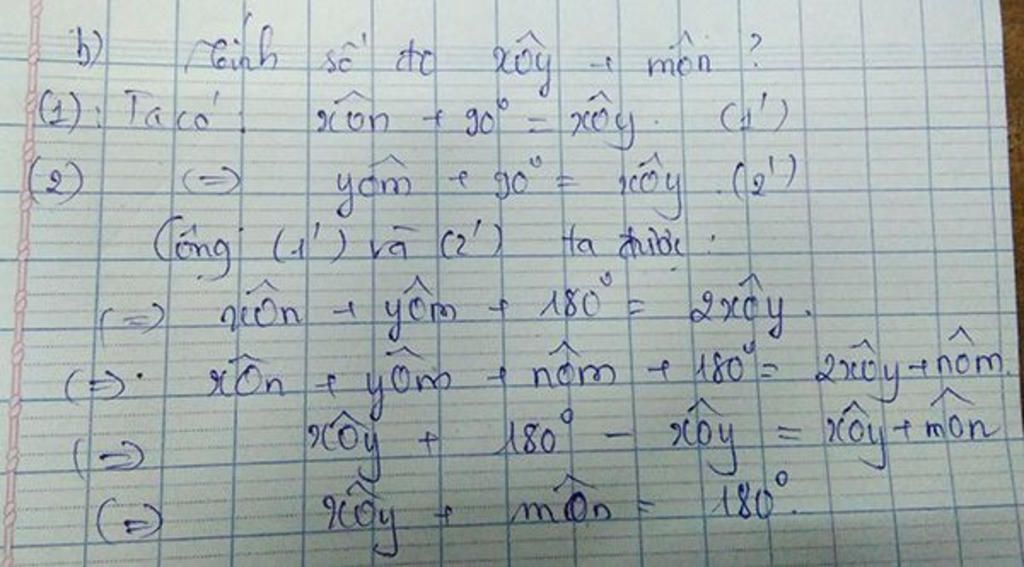 b) Tính số đo xôy + môn ?
(1) : Ta có : xôn + 90° = xôy. (1')
(2) (=) yôm + 90° = xôy. (2')
Cộng (1') và (2') ta được :
(=) xôn + yôm + 180° = 2xôy.
(=)· xôn + yôm + nôm + 180° = 2xôy + nôm.
(=) xôy + 180° - xôy = xôy + môn
(=) xôy + môn = 180°.